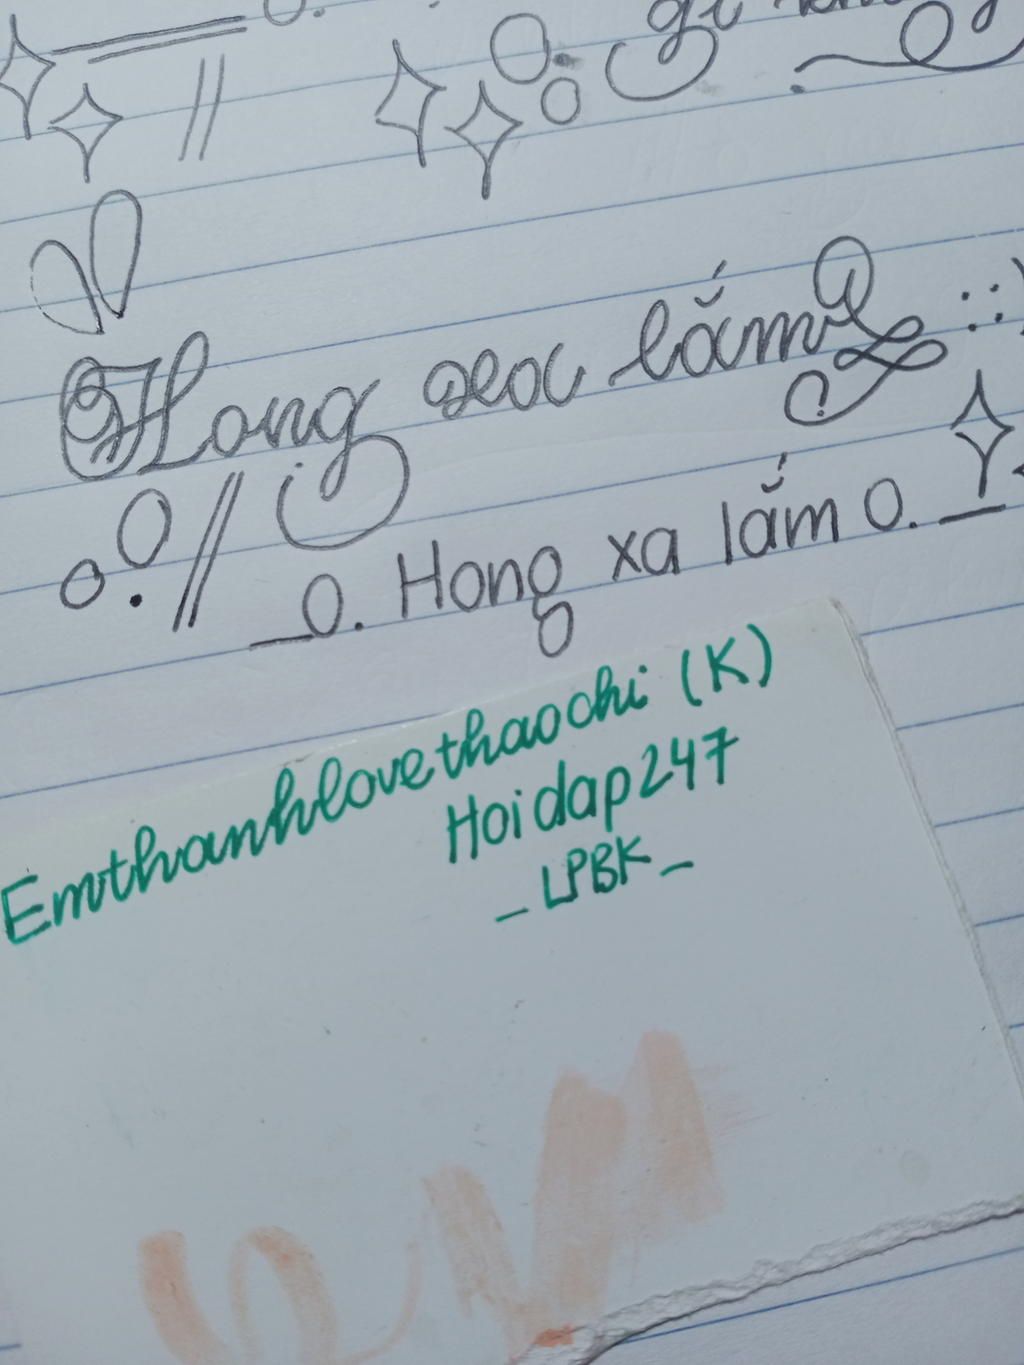 gì
Hong xa lắm ::)
_0. Hong xa lắm 0._
Emthanhlovethaochi (K)
Hoidap247
_LPBK_